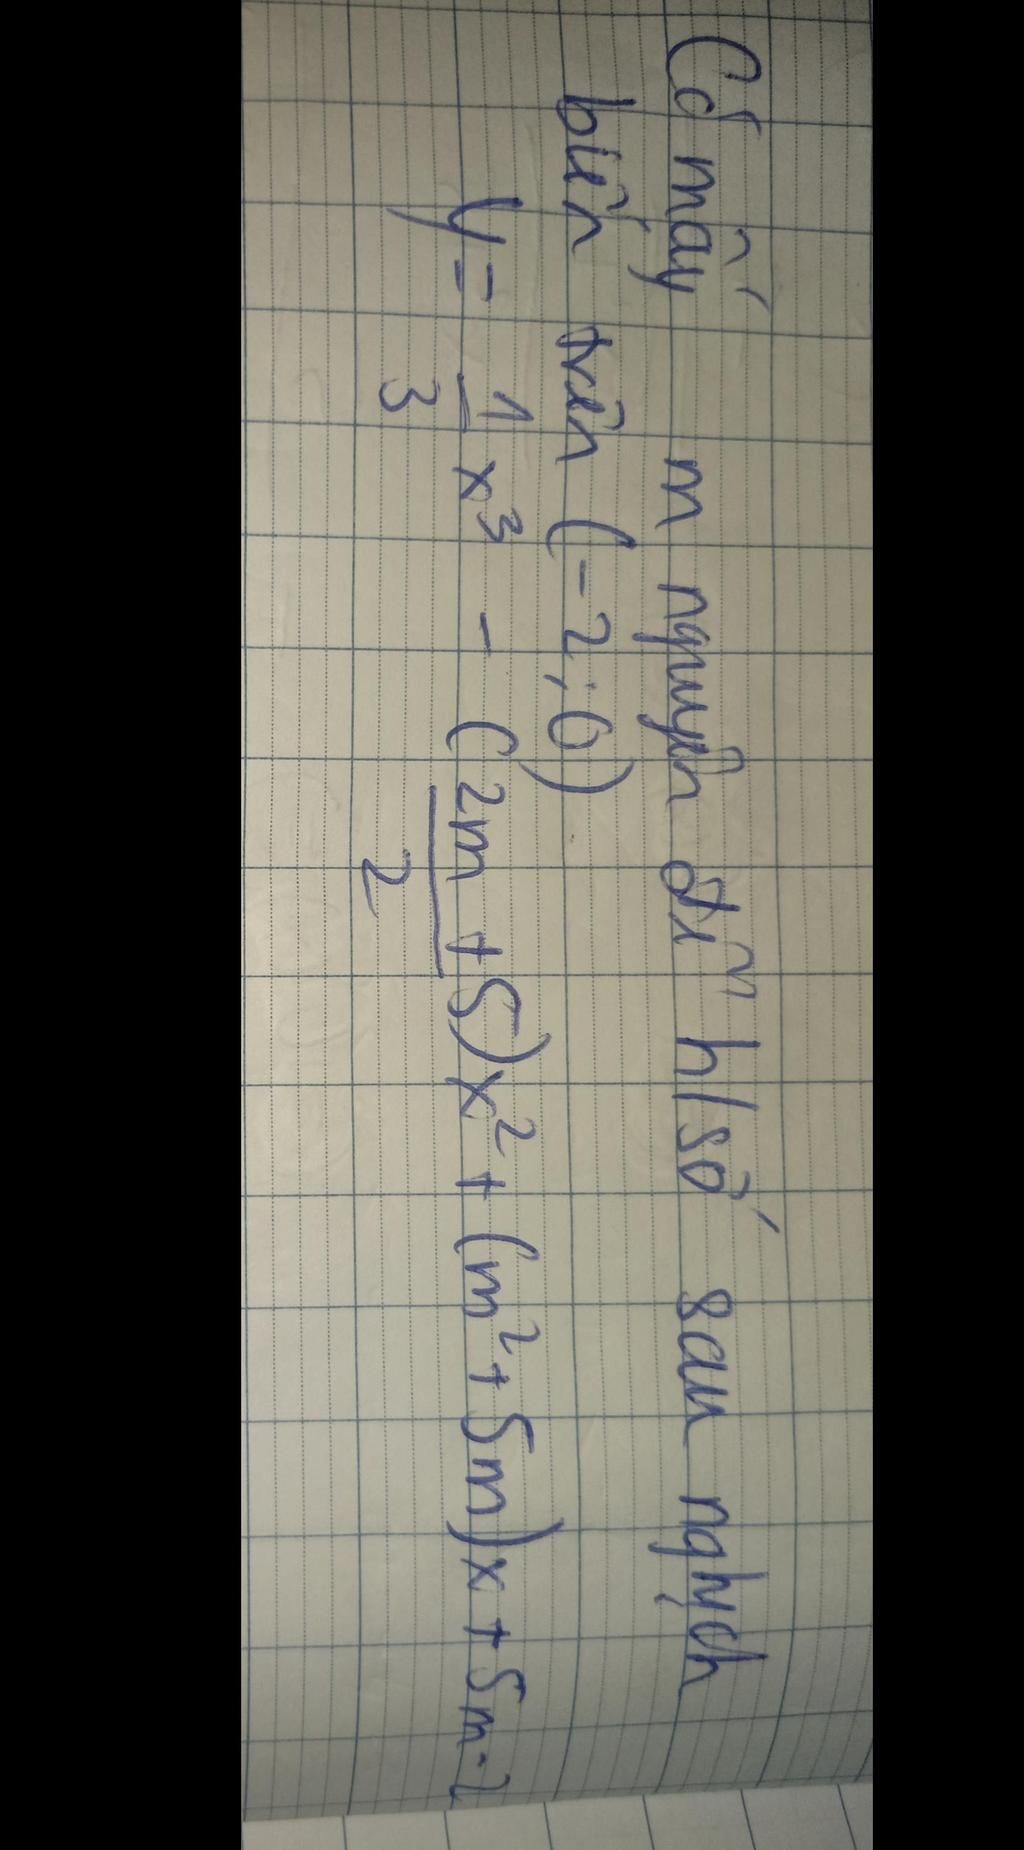 Có mấy m nguyên để h/số sau nghịch
biến trên (-2; 0)
y = 1/3 x³ - (2m + 5)/2 x² + (m² + 5m)x + 5m-2